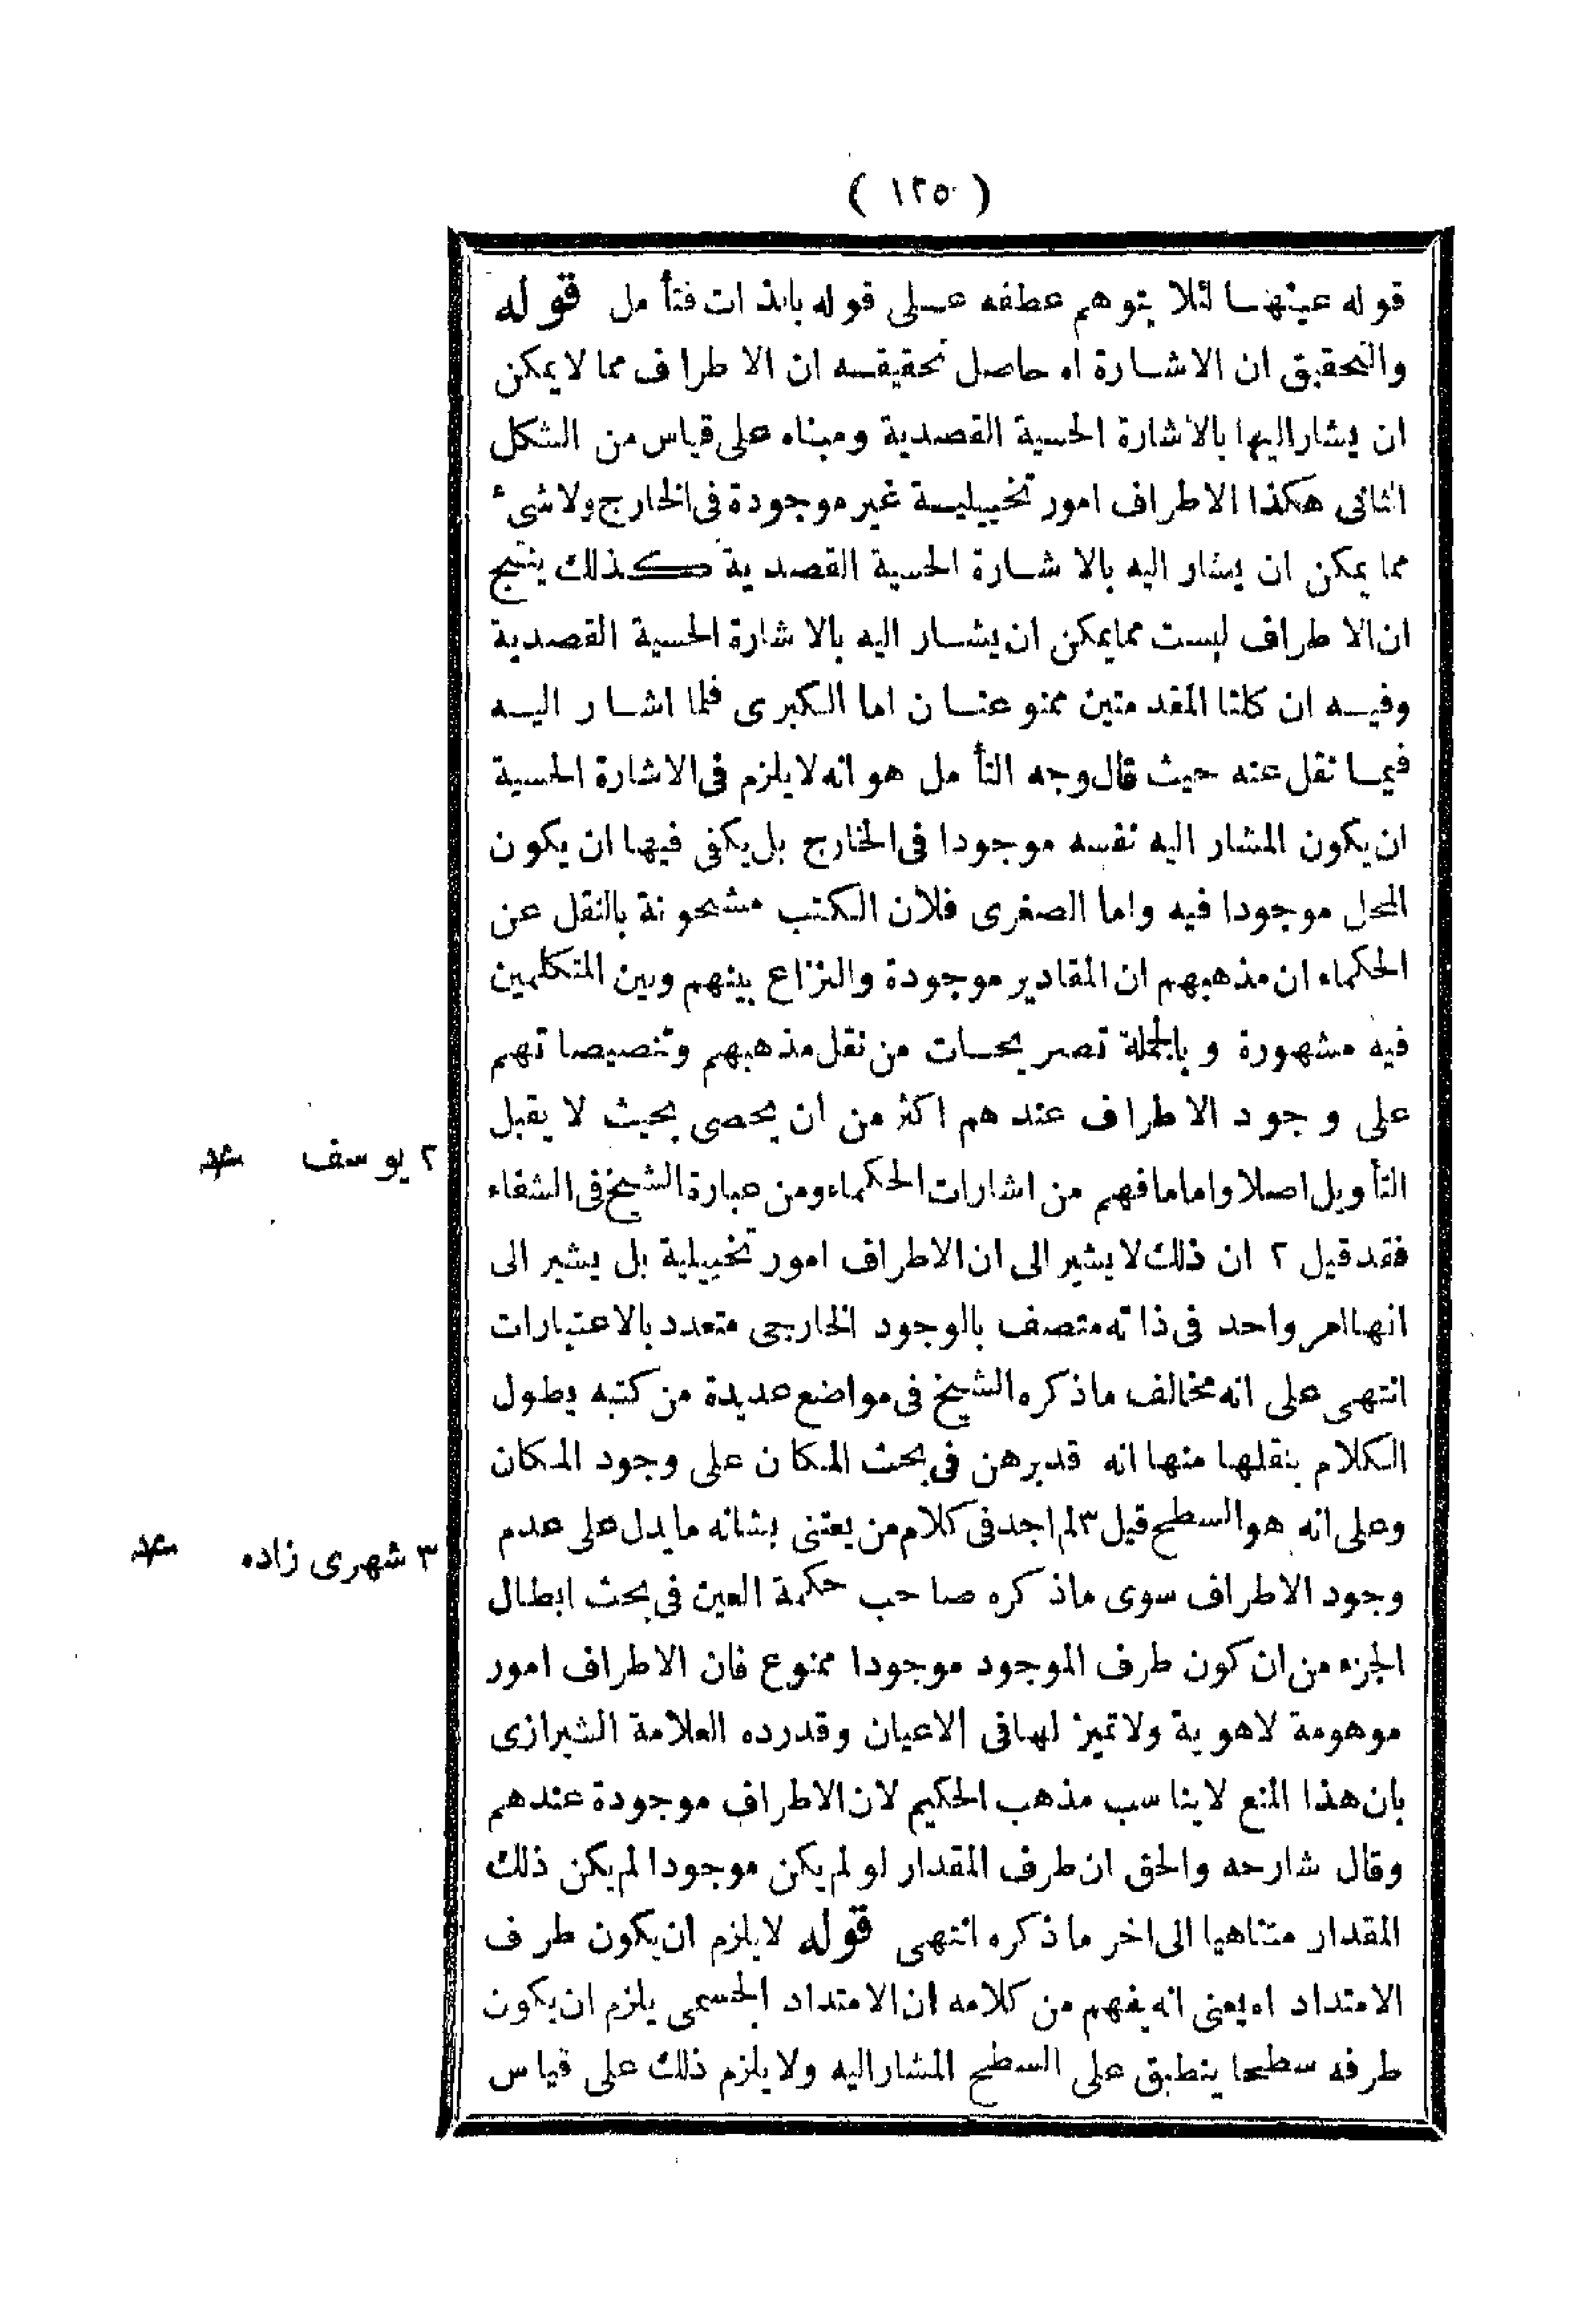 ( ١٢٥ )
قوله عينها لئلا يتوهم عطفه على قوله بالذات فتأمل قوله
والتحقيق ان الاشارة اه حاصل تحقيقه ان الاطراف مما لا يمكن
ان يشار اليها بالاشارة الحسية القصدية ومبناه على قياس من الشكل
الثانى هكذا الاطراف امور تخييلية غير موجودة فى الخارج ولا شئ
مما يمكن ان يشار اليه بالاشارة الحسية القصدية كذلك ينتج
ان الاطراف ليست مما يمكن ان يشار اليه بالاشارة الحسية القصدية
وفيه ان كلتا المقدمتين ممنوعتان اما الكبرى فلما اشار اليه
فيما نقل عنه حيث قال وجه التأمل هو انه لا يلزم فى الاشارة الحسية
ان يكون المشار اليه نفسه موجودا فى الخارج بل يكفى فيها ان يكون
المحل موجودا فيه واما الصغرى فلان الكتب مشحونة بالنقل عن
الحكماء ان مذهبهم ان المقادير موجودة والنزاع بينهم وبين المتكلمين
فيه مشهورة وبالجملة تصريحات من نقل مذهبهم وتنصيصاتهم
على وجود الاطراف عندهم اكثر من ان يحصى بحيث لا يقبل
التأويل اصلا واما ما فهم من اشارات الحكماء ومن عبارة الشيخ فى الشفاء
فقد قيل ٢ ان ذلك لا يشير الى ان الاطراف امور تخييلية بل يشير الى
انها امر واحد فى ذاته متصف بالوجود الخارجى متعدد بالاعتبارات
انتهى على انه مخالف ما ذكره الشيخ فى مواضع عديدة من كتبه يطول
الكلام بنقلها منها انه قد برهن فى بحث المكان على وجود المكان
وعلى انه هو السطح قيل ٣ لم اجد فى كلام من يعتنى بشانه ما يدل على عدم
وجود الاطراف سوى ما ذكره صاحب حكمة العين فى بحث ابطال
الجزء من ان كون طرف الموجود موجودا ممنوع فان الاطراف امور
موهومة لا هوية ولا تميز لها فى الاعيان وقد رده العلامة الشيرازى
بان هذا المنع لا يناسب مذهب الحكيم لان الاطراف موجودة عندهم
وقال شارحه والحق ان طرف المقدار لو لم يكن موجودا لم يكن ذلك
المقدار متناهيا الى اخر ما ذكره انتهى قوله لا يلزم ان يكون طرف
الامتداد اه يعنى انه يفهم من كلامه ان الامتداد الجسمى يلزم ان يكون
طرفه سطحا ينطبق على السطح المشار اليه ولا يلزم ذلك على قياس
٢ يوسف
٣ شهرى زاده